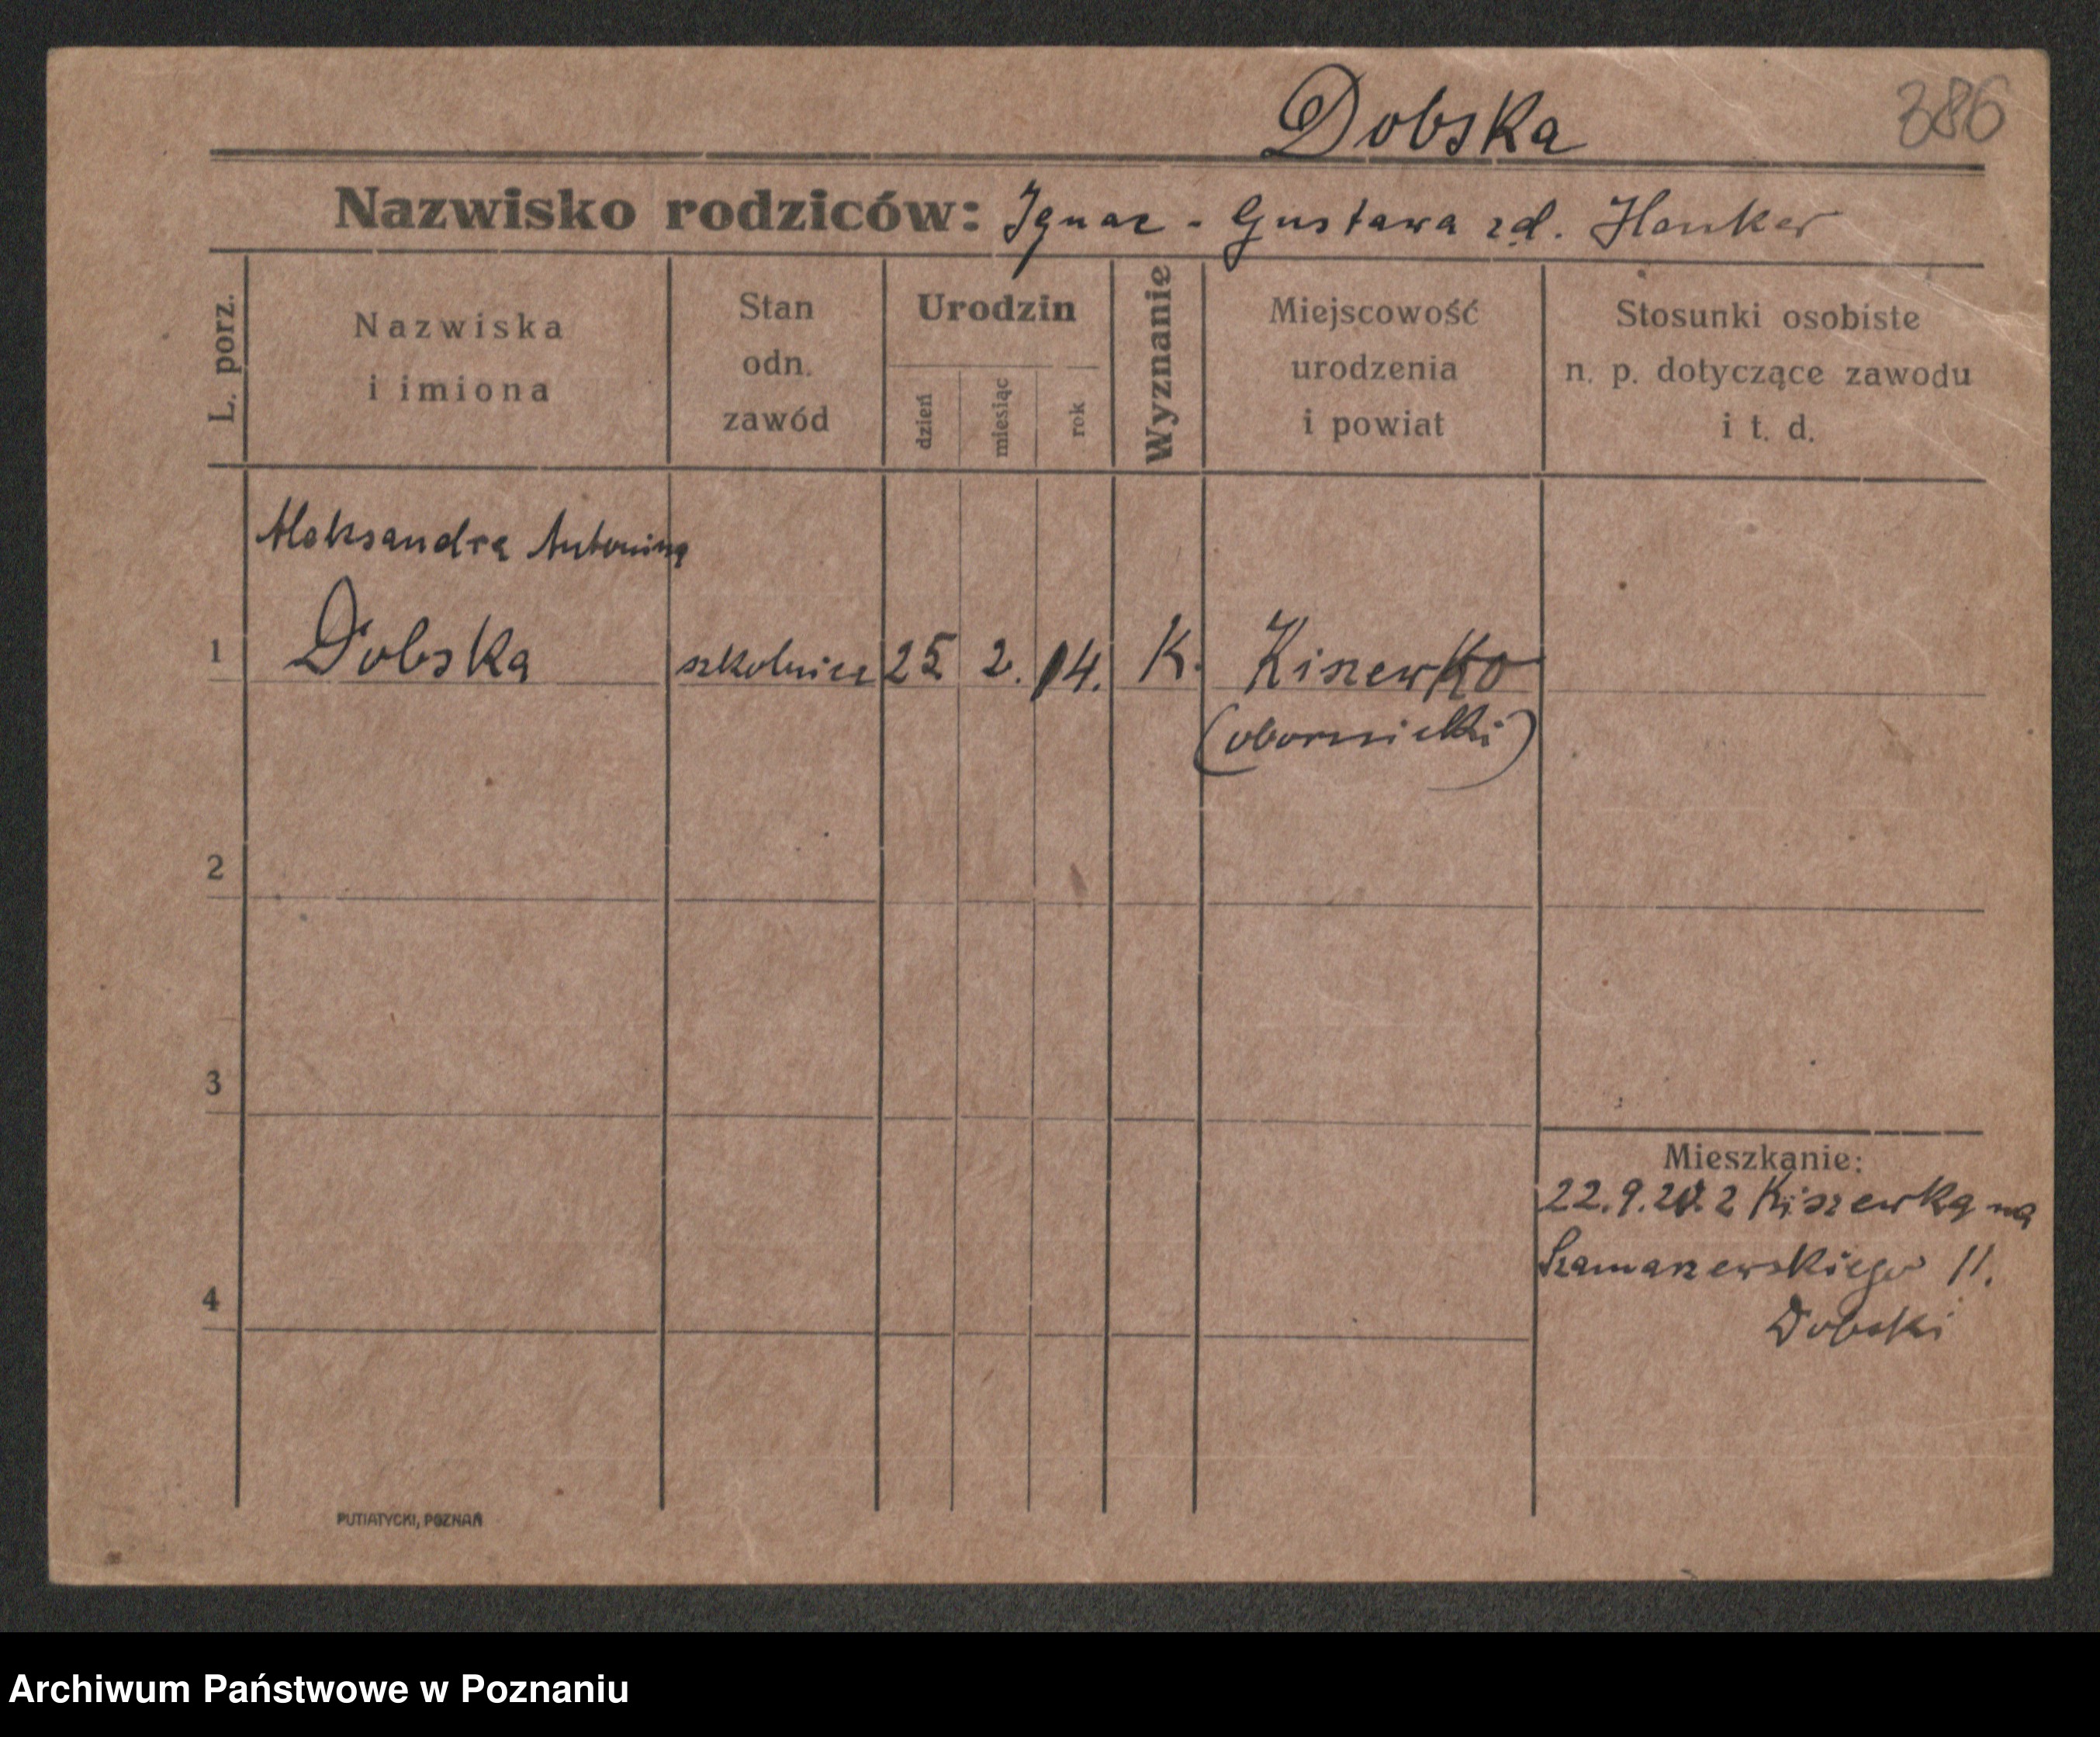 Dobska
386
Nazwisko rodziców: Ignac - Gustawa zd. Henker
L. porz.
Nazwiska
i imiona
Stan
odn.
zawód
Urodzin
dzień
miesiąc
rok
Wyznanie
Miejscowość
urodzenia
i powiat
Stosunki osobiste
n. p. dotyczące zawodu
i t. d.
Aleksandra Antonina
1 Dobska szkolnica 25 2. 14. K. Kiszewko
(obornicki)
2
3
Mieszkanie:
22.9. z Kiszewka na
Szamarzewskiego 11.
4
Dobski
PUTIATYCKI, POZNAŃ
Archiwum Państwowe w Poznaniu